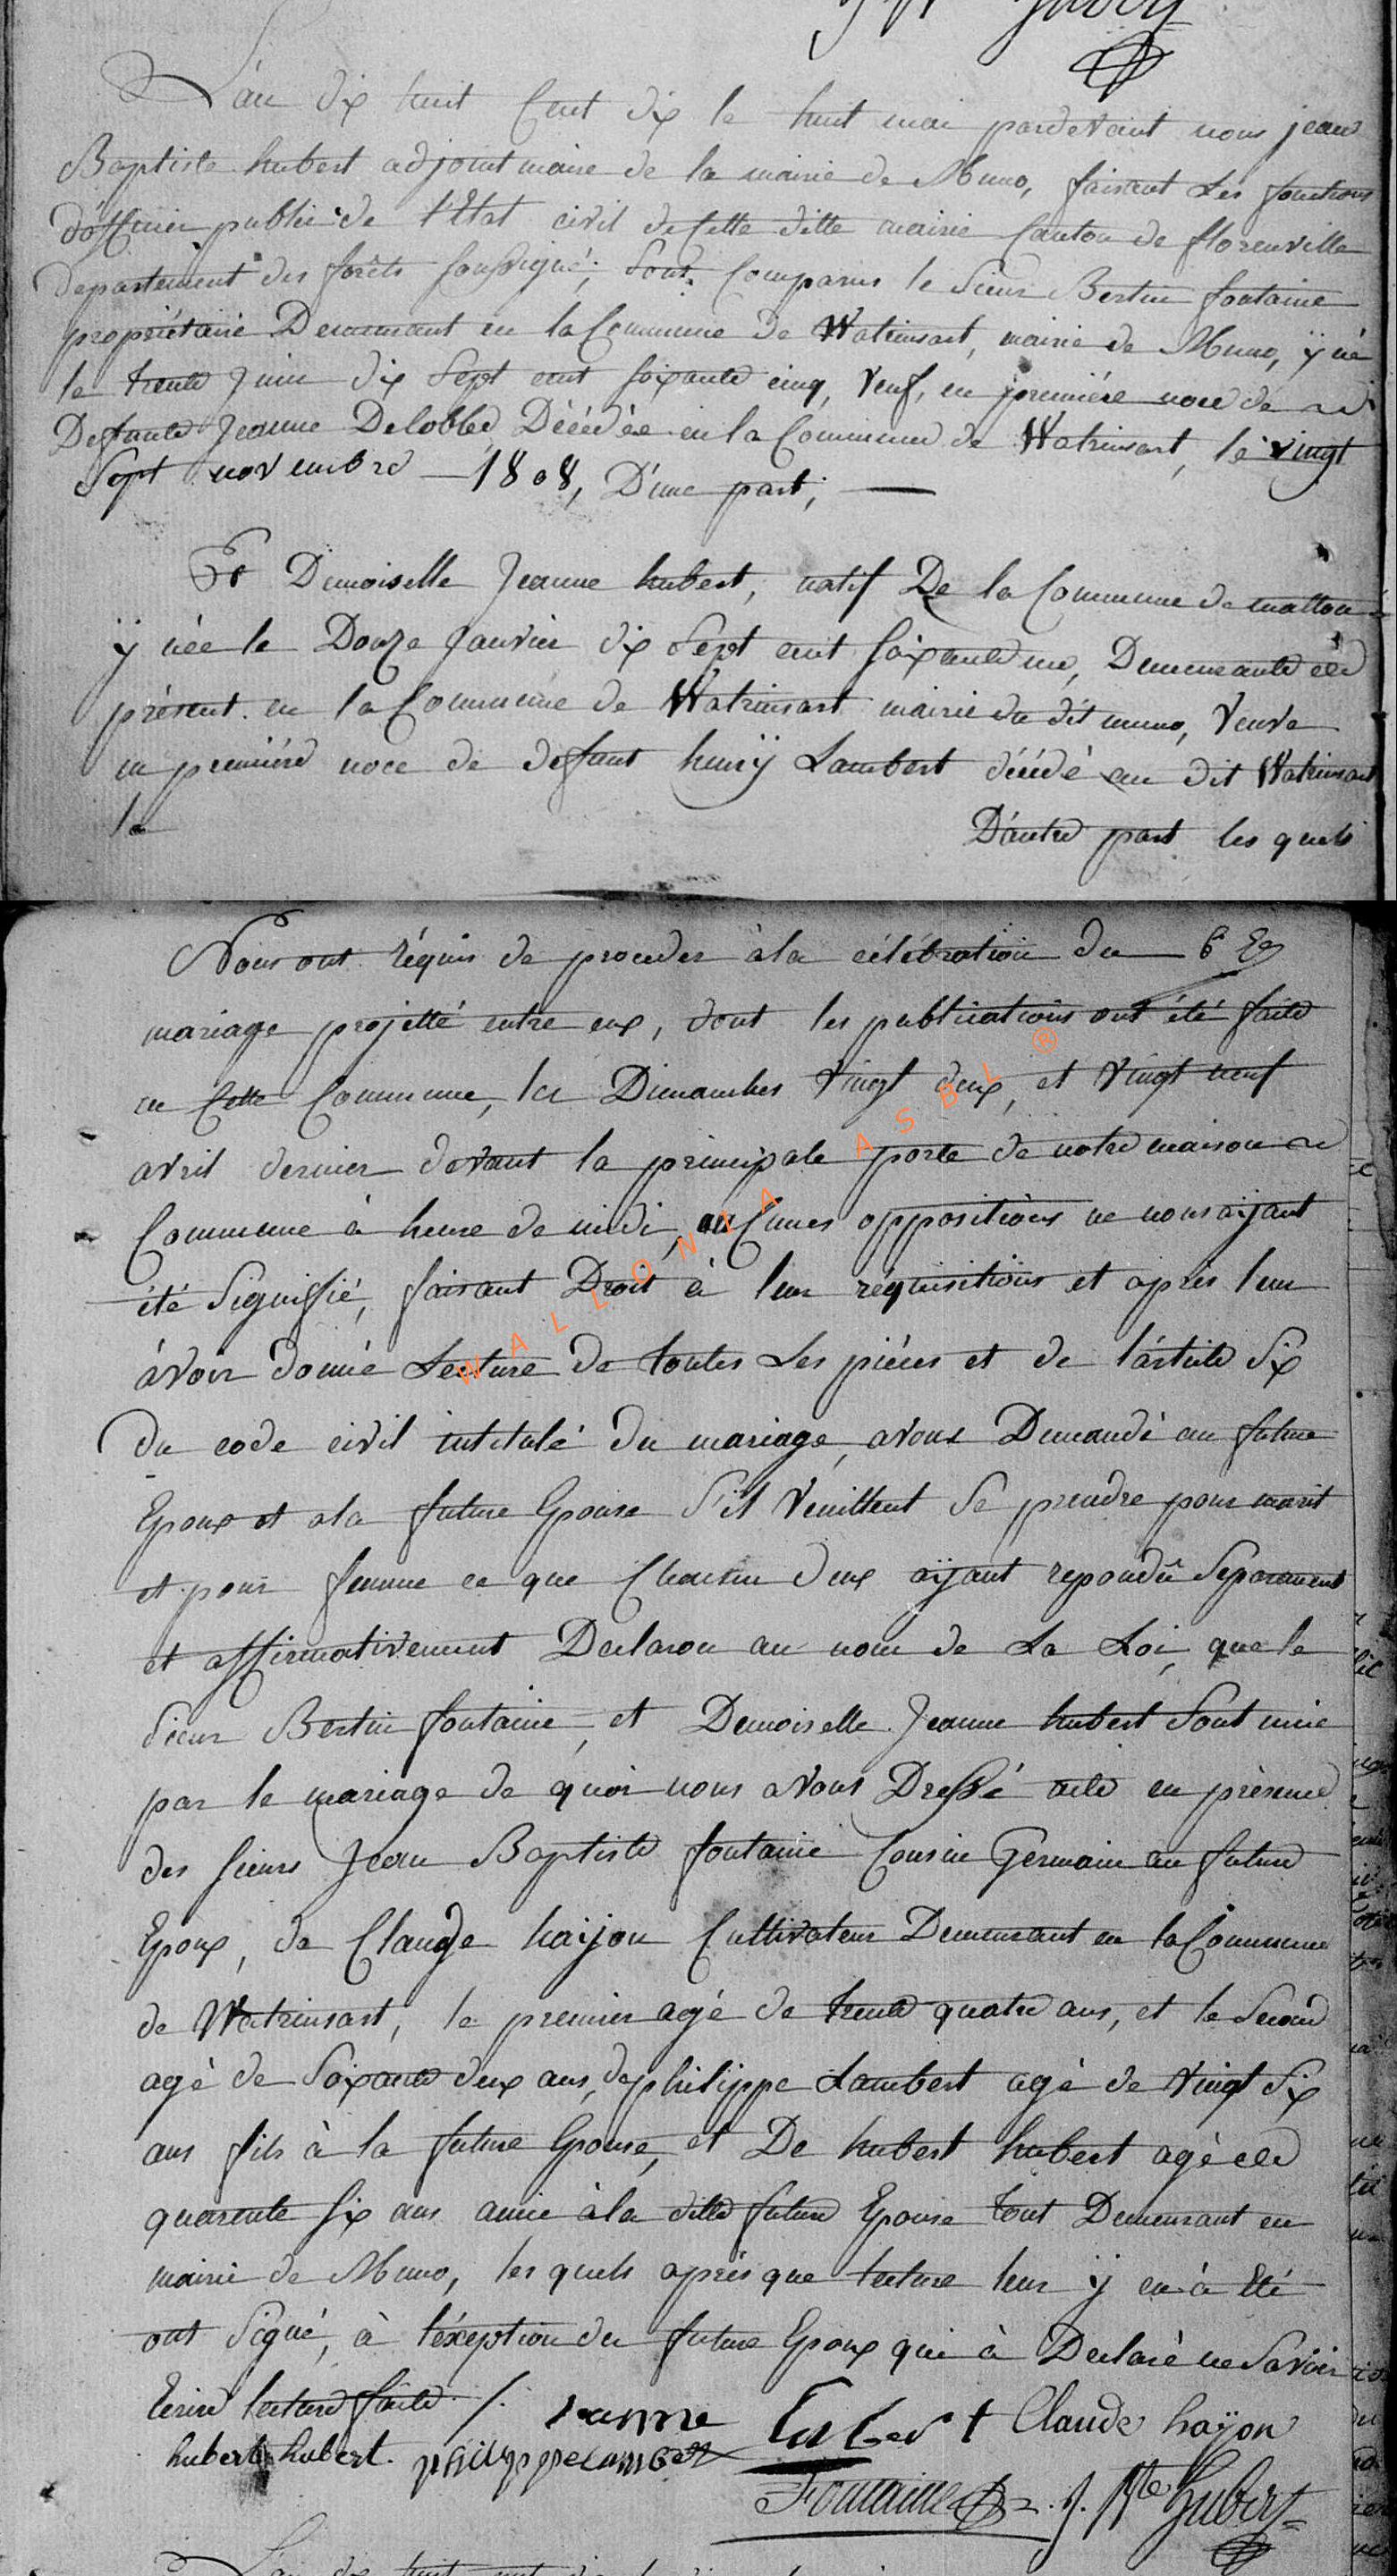 L'an dix huit Cent dix le huit mai pardevant nous jean
Baptiste hubert adjoint maire de la mairie de Muno, faisant Les fonctions
d'officier public de l'Etat civil de Cette ditte mairie Canton de florenville
departement des forêts soussigné, sont Comparus le Sieur Bertin fontaine
propriétaire Demeurant en la Commune de Watrinsart, mairie de Muno, ÿ né
le trente Juin dix Sept cent soixante cinq, Veuf, en premiére noce de
Defunte Jeanne Delobbe, Décédée en la Commune de Watrinsart, le vingt
Sept novembre 1808, D'une part;
Et Demoiselle Jeanne hubert, natif De la Commune de matton
ÿ née le Douze Janvier dix Sept cent soixante un, Demeurante de
présent en la Commune de Watrinsart mairie du dit muno, Veuve
en premiére noce de defunt henrÿ Lambert décédé au dit Watrinsart
le D'autre part les quels
Nous ont réquis de proceder à la célébration du 6 Ee
mariage projetté entre eux, dont les publications ont été faite
en Cette Commune, les Dimanches vingt deux, et vingt neuf
avril dernier devant la principale porte de notre maison
Commune à heure de midi, auCunes oppositions ne nous aÿant
été Signifié, faisant Droit à leur réquisitions et après leur
àvoir donné Lecture de toutes Les piéces et de l'article Six
du code civil intitulé du mariage, avons Demandé au future
Epoux et a la future Epouse S'il veuillent Se prendre pour marit
et pour femme ce que Chacun d'eux aÿant repondû Séparement
et affirmativement Declarons au nom de La Loi, que le
Sieur Bertin fontaine, et Demoiselle Jeanne hubert Sont unie
par le mariage de quoi nous avons Dressé acte en présence
des sieurs Jean Baptiste fontaine Cousin Germain au future
Epoux, de Claude haijon Cultivateur Demeurant en la Commune
de Watrinsart, le premier agé de trente quatre ans, et le Second
agé de Soixante deux ans, de philippe Lambert agé de vingt Six
ans fils à la future Epouse, et De hubert hubert agé de
quarente six ans amie à la ditte future Epouse tout Demeurant en
mairie de Muno, les quels après que lecture leur ÿ en à Eté
ont Signé, à l'éxeption du future Epoux qui à Declaré ne Savoir
Ecrire lecture faite
Janne hubert Claude haÿon
hubert hubert. philippe lambert
Fontaine J. Bte Hubert
WALLONIA ASBL ®